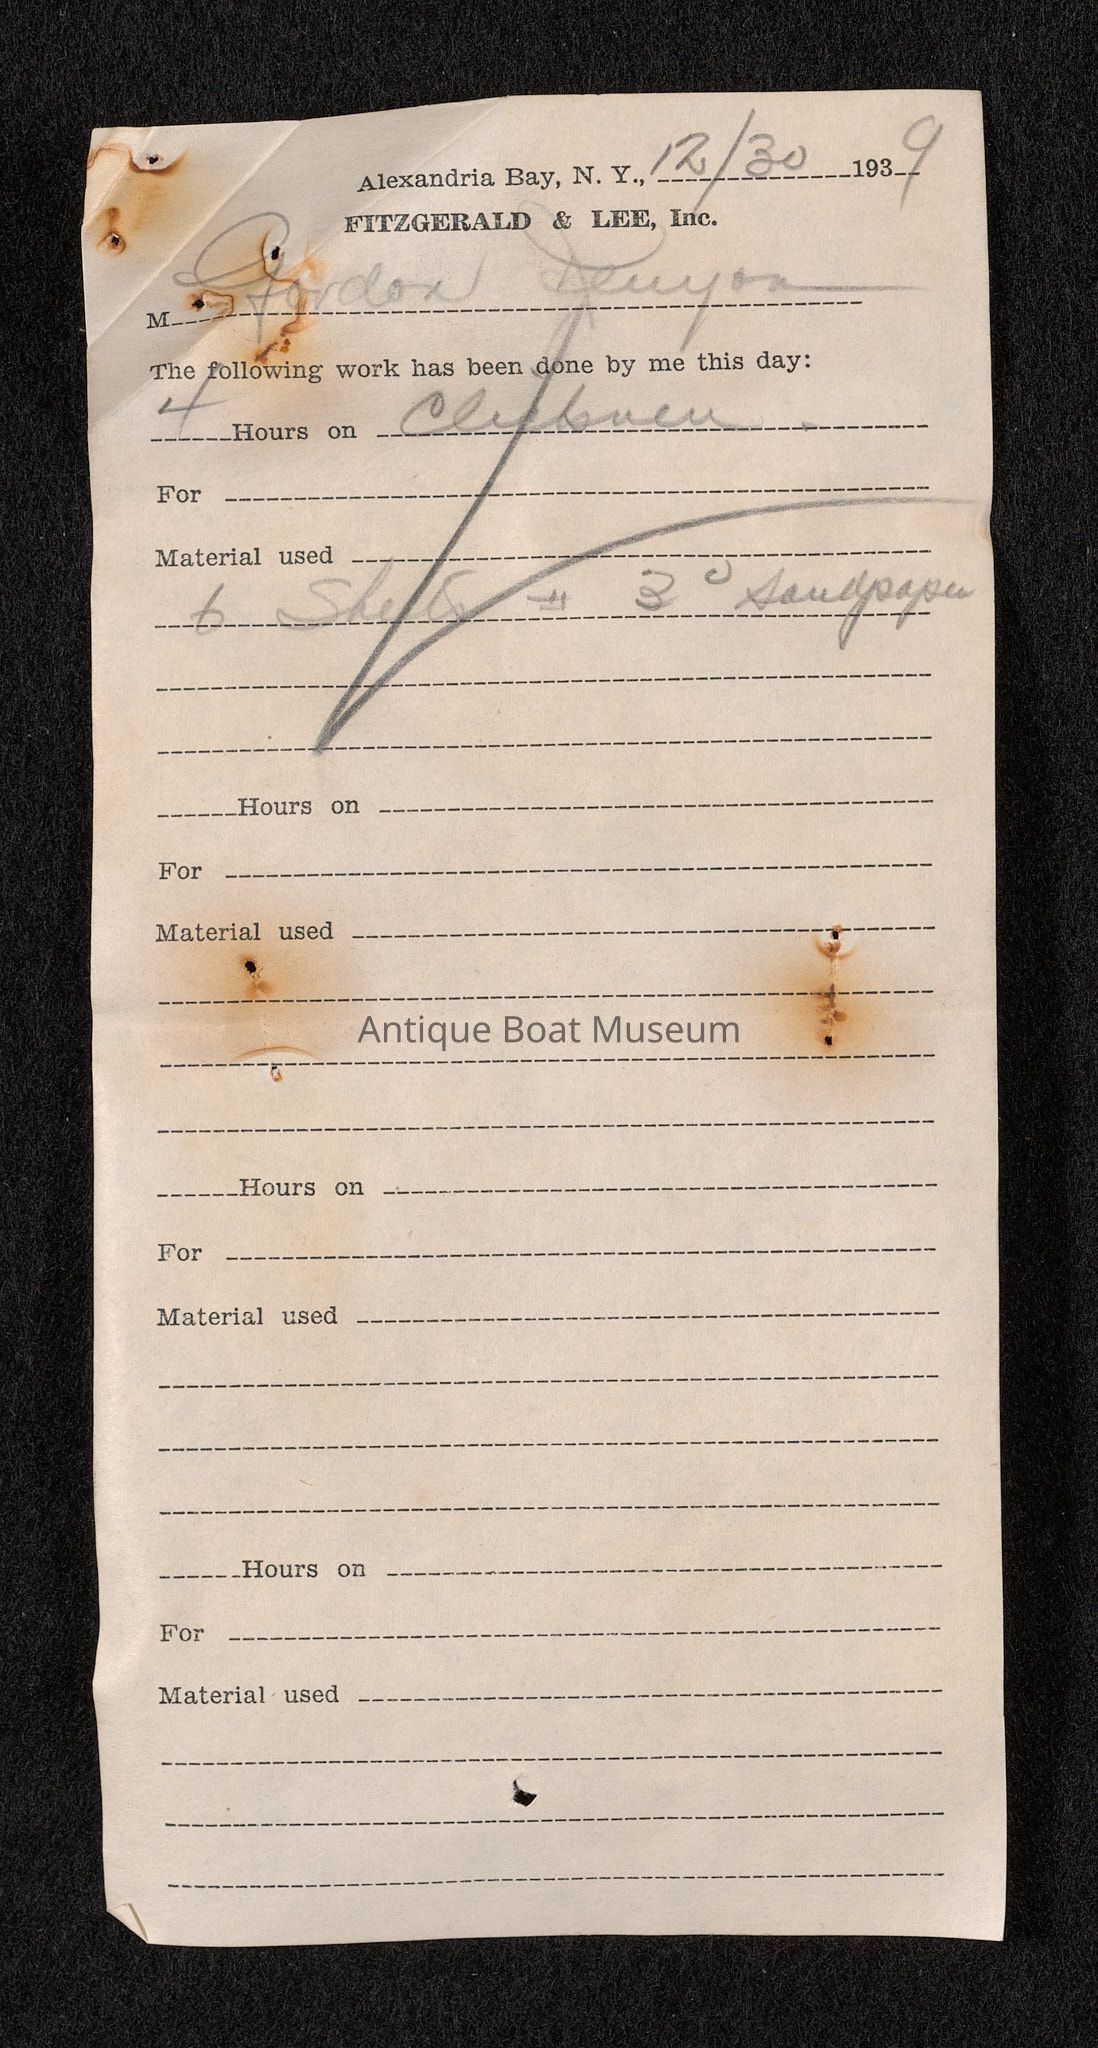 Alexandria Bay, N. Y., 12/30 1939
FITZGERALD & LEE, Inc.
M Gordon
The following work has been done by me this day:
4 Hours on
For
Material used
6 Sheets # 3° Sandpaper
Hours on
For
Material used
Antique Boat Museum
Hours on
For
Material used
Hours on
For
Material used